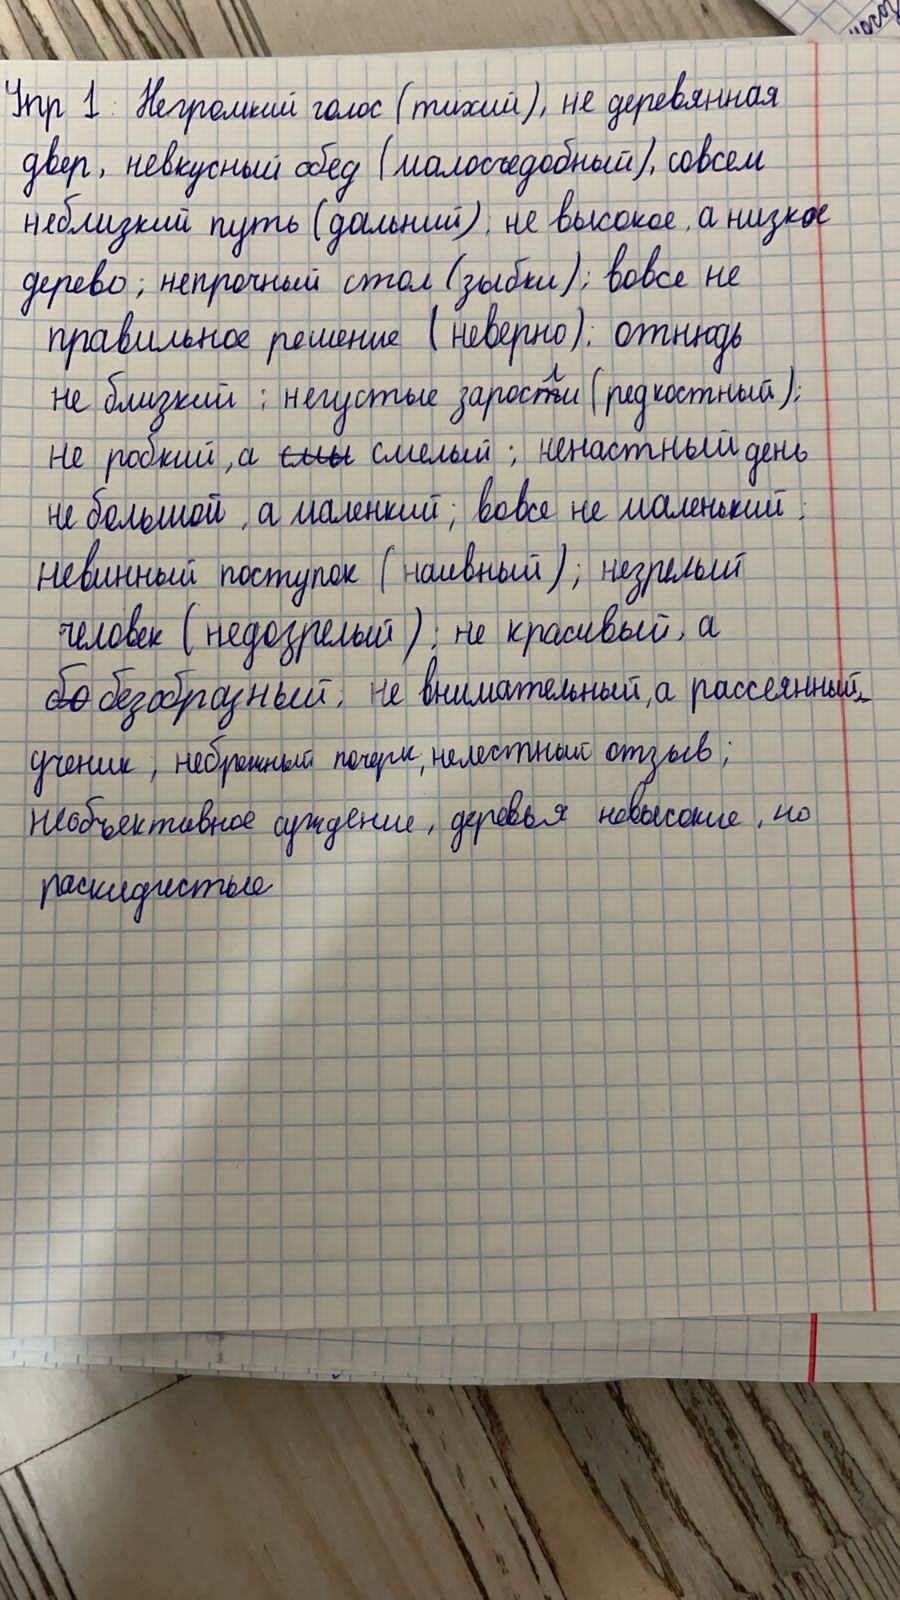 Упр 1. Негромкий голос (тихий), не деревянная
двер, невкусный обед (малосъедобный), совсем
неблизкий путь (дальний); не высокое, а низкое
дерево; непрочный стол (зыбки); вовсе не
правильное решение (неверно); отнюдь
не близкий; негустые заросли (редкостный);
не робкий, а смелый; ненастный день
не большой, а маленкий; вовсе не маленький;
невинный поступок (наивный); незрелый
человек (недозрелый); не красивый, а
безобразный; не внимательный, а рассеянный
ученик; небрежный почерк, нелестный отзыв;
необъективное суждение, деревья невысокие, но
раскидистые